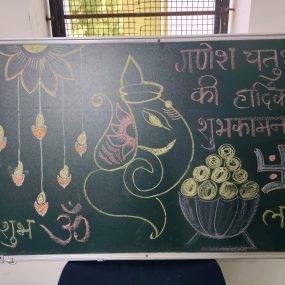 गणेश चतु
की हार्दिक
शुभकामन
शुभ ॐ
ला